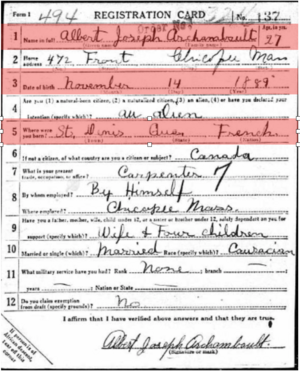 Form 1 494 REGISTRATION CARD No. 137
1 Name in full Albert Joseph Archambault Age, in yrs. 27
2 Home address 472 Front Chicopee Mass
3 Date of birth November 14 1889
4 Are you (1) a natural-born citizen, (2) a naturalized citizen, (3) an alien, (4) or have you declared your
intention (specify which)? an alien
5 Where were you born? St. Denis Que French
6 If not a citizen, of what country are you a citizen or subject? Canada
7 What is your present trade, occupation, or office? Carpenter 7
8 By whom employed? By Himself
Where employed? Chicopee Mass.
9 Have you a father, mother, wife, child under 12, or a sister or brother under 12, solely dependent on you for
support (specify which)? Wife & Four children
10 Married or single (which)? Married Race (specify which)? Caucasian
11 What military service have you had? Rank None branch
years Nation or State
12 Do you claim exemption from draft (specify grounds)? No
I affirm that I have verified above answers and that they are true.
Albert Joseph Archambault
(Signature or mark)